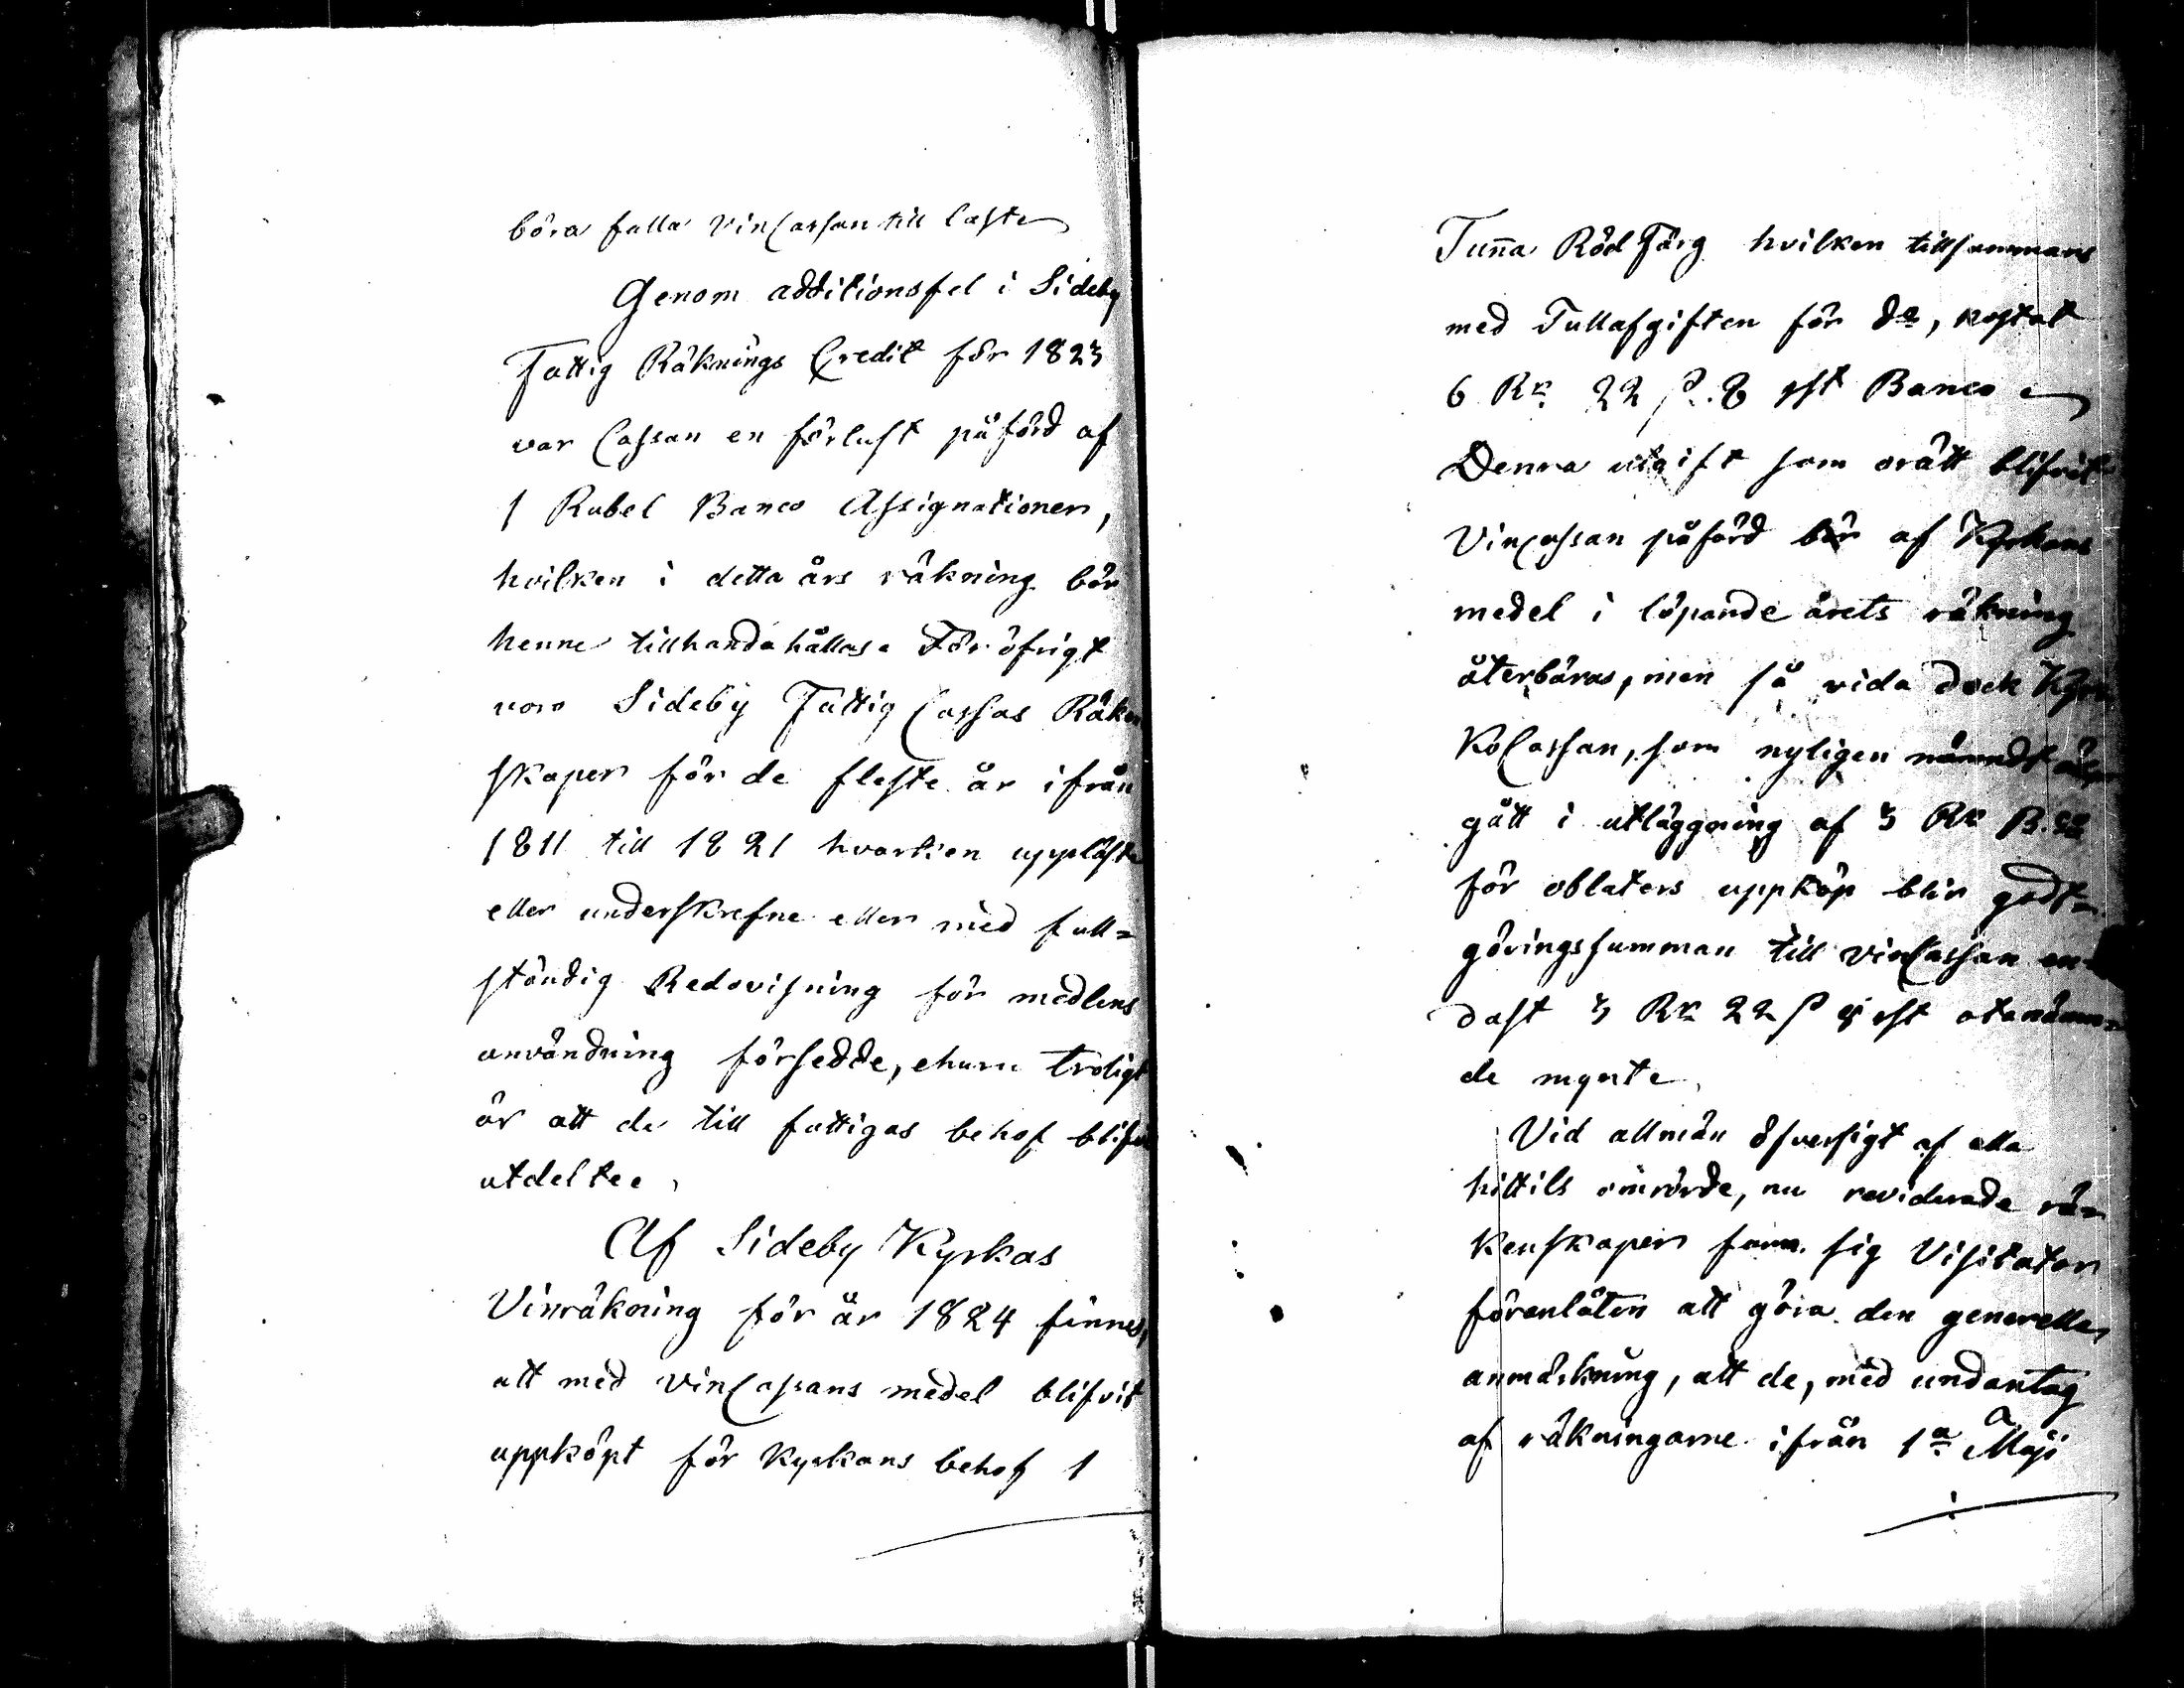 böra falla VinCassan till last
Genom additionsfel i Sideby
Fattig Räknings Credit för 1823
var Cassan en förlust påförd af
1 Rubel Banco Assignationer,
hvilken i detta års räkning bör
henne tillhandahållas. För öfrigt
voro Sideby Fattig Cassas Räken
skaper för de fleste år ifrån
1811 till 1821 hvarken uppläste
eller underskrefne eller med full=
ständig Redovisning för medlens
användning försedde, ehuru troligt
är att de till fattigas behof blifvit
utdelte.
Af Sideby Kyrkas
Vinräkning för år 1824 finnes,
att med VinCassans medel blifvit
uppköpt för Kyrkans behof 1
Tunna Röd Färg hvilken tillsammans
med Tullafgiften för do, kostat
6 Rr. 22 s. 8 rst Banco
Denna utgift som orätt blifvit
VinCassan påförd bör af Kyrkans
medel i löpande årets räkning
återbäras, men så vida dock Kyr
KoCassan, som nyligen nämndt
gått i utläggning af 3 Rr B.
för oblaters uppköp blir godt=
göringssumman till VinCassan en=
dast 3 Rr 22 s 8 rst ofannämn=
de mynt.
Vid allmän öfversigt af alla
hittils omrörde, nu reviderade rä=
kenskaper fann sig Visitator
föranlåten att göra den generella
anmärkning, att de, med undantag
af räkningarne ifrån 1a Maji